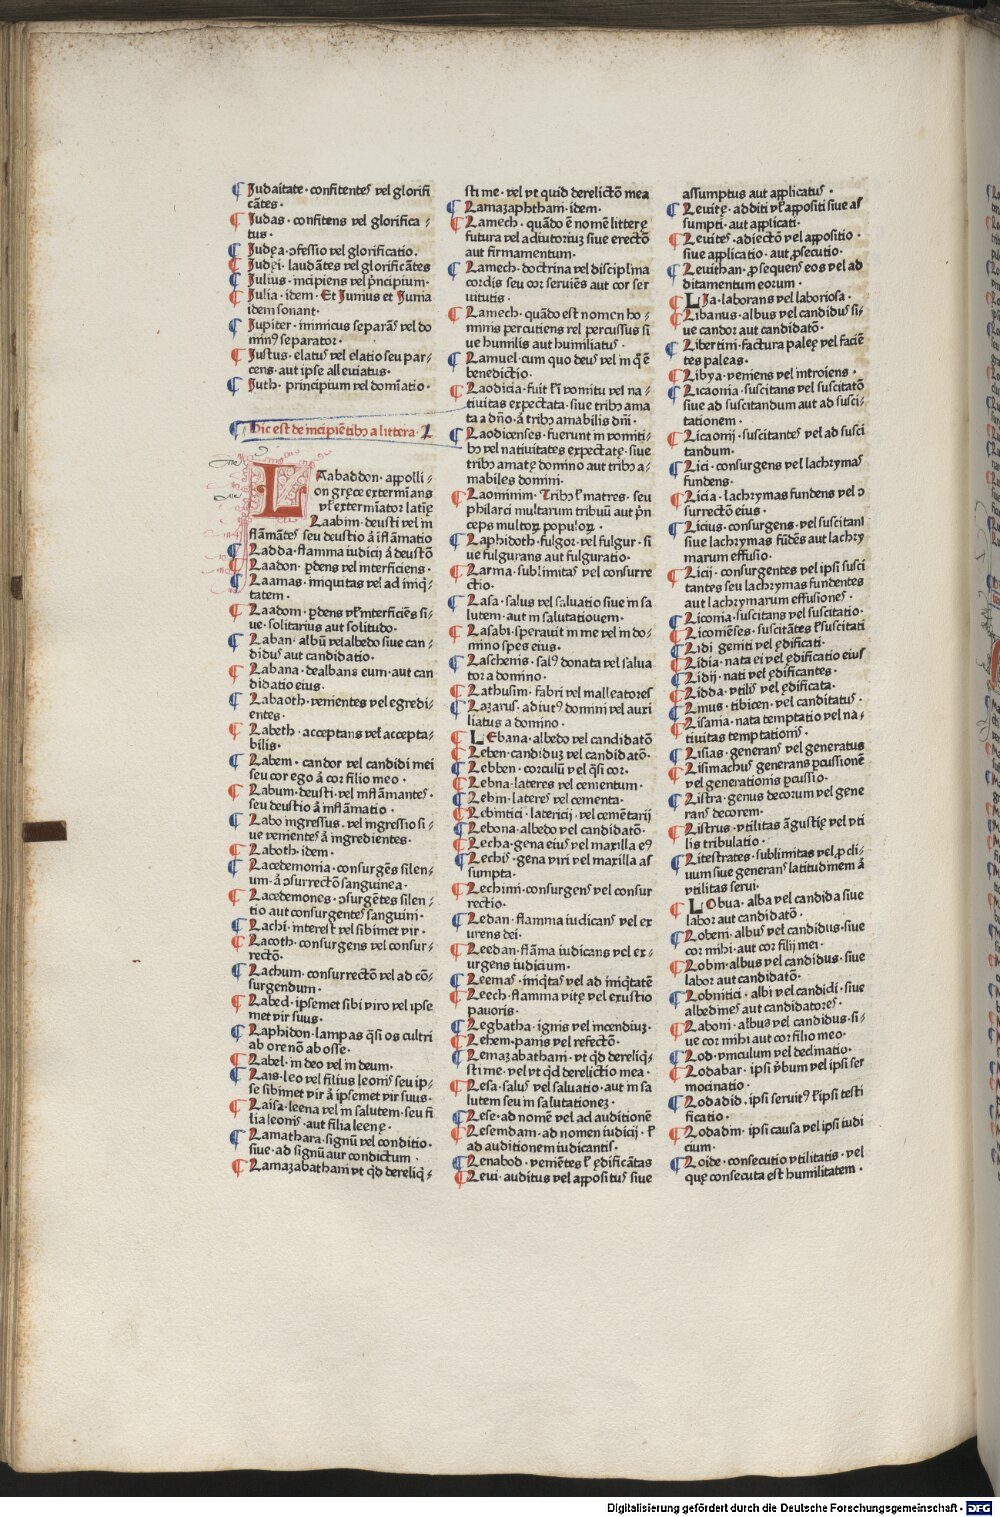 Judaitate· confitentes vel glorifi
cātes·
Judas· confitens vel glorifica⸗
tus·
Judęa·ↄfessio vel glorificatio·
Judęi· laudātes vel glorificātes
Julius· incipiens vel p̄ncipium·
Julia· idem· Et Junius et Junia
idem sonant·
Jupiter· inimicus separās vel do
minꝰ separator·
Justus· elatus vel elatio seu par⸗
cens· aut ipse alleuiatus·
Juth· principium vel domīatio·
Hic est de incipiētibꝫ a littera· L
LAabaddon· appolli⸗
on gręce extermīans
vl̄ extermīator latīe
Laabim· deusti vel in
flāmātes seu deustio aut īflāmatio
Ladda· flamma iudicij aut deustō
Laadon· ꝑdens vel interficiens·
Laamas· iniquitas vel ad iniq̄⸗
tatem·
Laadom· ꝑdens vl̄ interficiēs si⸗
ue· solitarius aut solitudo·
Laban· albū vel albedo siue can⸗
didus aut candidatio·
Labana· dealbans eum· aut can
didatio eius·
Labaoth· venientes vel egredi⸗
entes·
Labeth· acceptans vel accepta⸗
bilis·
Labem· candor vel candidi mei
seu cor ego aut cor filio meo·
Labum· deusti· vel inflāmantes·
seu deustio aut inflāmatio·
Labo ingressus· vel ingressio si⸗
ue venientes aut ingredientes·
Laboth· idem·
Lacedemonia· consurgēs silen⸗
tium· aut ↄsurrectō sanguinea·
Lacedemones· ↄsurgētes silen⸗
tio aut consurgentes sanguini·
Lachi· interest vel sibimet vir·
Lacoth· consurgens vel consur⸗
rectō·
Lachum· consurrectō vel ad cō⸗
surgendum·
Labed· ipsemet sibi viro vel ipse
met vir suus·
Laphidon· lampas q̄si os cultri
ab ore nō ab osse·
Label· in deo vel in deum·
Lais· leo vel filius leonis seu ip⸗
se sibimet vir aut ipsemet vir suus·
Laisa· leena vel in salutem· seu fi
lia leonis· aut filia leenę·
Lamathara· signū vel conditio·
siue· ad signū aut condictum·
Lamazabathani vt q̇d dereliq̇⸗
sti me· vel vt quid derelictō mea
Lamazaphthani· idem·
Lamech· quādo ē nomē litterę
futura vel adiutoriuꝫ siue erectō
aut firmamentum·
Lamech· doctrina vel disciplina
cordis seu cor seruiēs aut cor ser
uitutis·
Lamech· quādo est nomen ho⸗
minis percutiens vel percussus si
ue humilis aut humiliatus·
Lamuel· cum quo deus vel in q̄ ē
benedictio·
Laodicia· fuit tribꝫ vomitu vel na⸗
tiuitas expectata· siue tribꝫ ama
ta a dn̄o· aut tribꝫ amabilis dn̄i·
Laodicenses· fuerunt in vomiti⸗
bꝫ vel natiuitates expectatę· siue
tribꝫ amatę domino aut tribꝫ a⸗
mabiles domini·
Laominim· Tribꝫ vel matres· seu
philarci multarum tribuū aut p̄n
ceps multoꝝ populoꝝ·
Laphidoth· fulgor· vel fulgur· si
ue fulgurans aut fulguratio·
Larma· sublimitas vel consurre
ctio·
Lasa· salus vel saluatio siue in sa
lutem· aut in salutationem·
Lasabi· sperauit in me vel in do⸗
mino spes eius·
Laschenis· salꝰ donata vel salua
tor a domino·
Lathusim· fabri vel malleatores
Lazarus· adiutꝰ domini vel auxi
liatus a domino·
LEbana· albedo vel candidatō
Leben· candiduꝫ vel candidatō·
Lebben· corculū vel q̄si cor·
Lebna· lateres vel cementum·
Lebin· lateres vel cementa·
Lebnitici· latericij· vel cemētarij
Lebona· albedo vel candidatō·
Lecha· gena eius vel maxilla eꝰ
Lechis· gena viri vel maxilla as
sumpta·
Lechimi· consurgens vel consur
rectio·
Ledan· flamma iudicans vel ex
urens dei·
Leedan· flāma iudicans vel ex⸗
urgens iudicium·
Leemas· iniq̇tas vel ad iniq̇tatē
Leech· flamma vitę vel exustio
pauoris·
Legbatha· ignis vel incendiuꝫ·
Lehem· panis vel refectō·
Lemazabathani· vt q̇d dereliq̇⸗
sti me· vel vt q̇d derelictio mea·
Lesa· salus vel saluatio· aut in sa
lutem seu in salutationeꝫ·
Lese· ad nomē vel ad auditionē
Lesemdam· ad nomen iudicij· vel
ad auditionem iudicantis·
Lenabod· veniētes vel ędificātas
Leui· auditus vel appositus siue
assumptus aut applicatus·
Leuitę· additi vl̄ appositi siue as
sumpti· aut applicati·
Leuites· adiectō vel appositio·
siue applicatio· aut ꝓsecutio·
Leuithan· ꝓsequens eos vel ad
ditamentum eorum·
LIa· laborans vel laboriosa·
Libanus· albus vel candidus si⸗
ue candor aut candidatō·
Libertini· factura paleę vel faciē
tes paleas·
Libya· veniens vel introiens·
Licaonia· suscitans vel suscitatō
siue ad suscitandum aut ad susci⸗
tationem·
Licaonij· suscitantes vel ad susci
tandum·
Lici· consurgens vel lachrymas
fundens·
Licia· lachrymas fundens vel ↄ
surrectō eius·
Licius· consurgens· vel suscitans
siue lachrymas fūdēs aut lachry
marum effusio·
Licij· consurgentes vel ipsi susci
tantes seu lachrymas fundentes
aut lachrymarum effusiones·
Liconia· suscitans vel suscitatio·
Liconiēses· suscitātes vel suscitati
Lidi geniti vel ędificati·
Lidia· nata ei vel ędificatio eius
Lidij· nati vel ędificantes·
Lidda· vtilis vel ędificata·
Linus· tibicen· vel canditatus·
Lisania· nata temptatio vel na⸗
tiuitas temptationis·
Lisias· generans vel generatus
Lisimachus generans ꝑcussionē
vel generationis ꝑcussio·
Listra· genus decorum vel gene
rans decorem·
Listrus· vtilitas āgustię vel vti
lis tribulatio·
Litestrates· sublimitas vel ꝓcli⸗
uum siue generans latitudinem aut
vtilitas serui·
LObua· alba vel candida siue
labor aut candidatō·
Lobeni· albus vel candidus· siue
cor mihi· aut cor filij mei·
Lobin· albus vel candidus· siue
labor aut candidatō·
Lobnitici· albi vel candidi· siue
albedines aut candidatores·
Laboni· albus vel candidus· si⸗
ue cor mihi aut cor filio meo·
Lod· vinculum vel declinatio·
Lodabar· ipsi v̄bum vel ipsi ser
mocinatio·
Lodadid· ipsi seruitꝰ vel ipsi testi
ficatio·
Lodadin· ipsi causa vel ipsi iudi
cium·
Loide· consecutio vtilitatis· vel
quę consecuta est humilitatem·
Digitalisierung gefördert durch die Deutsche Forschungsgemeinschaft - DFG